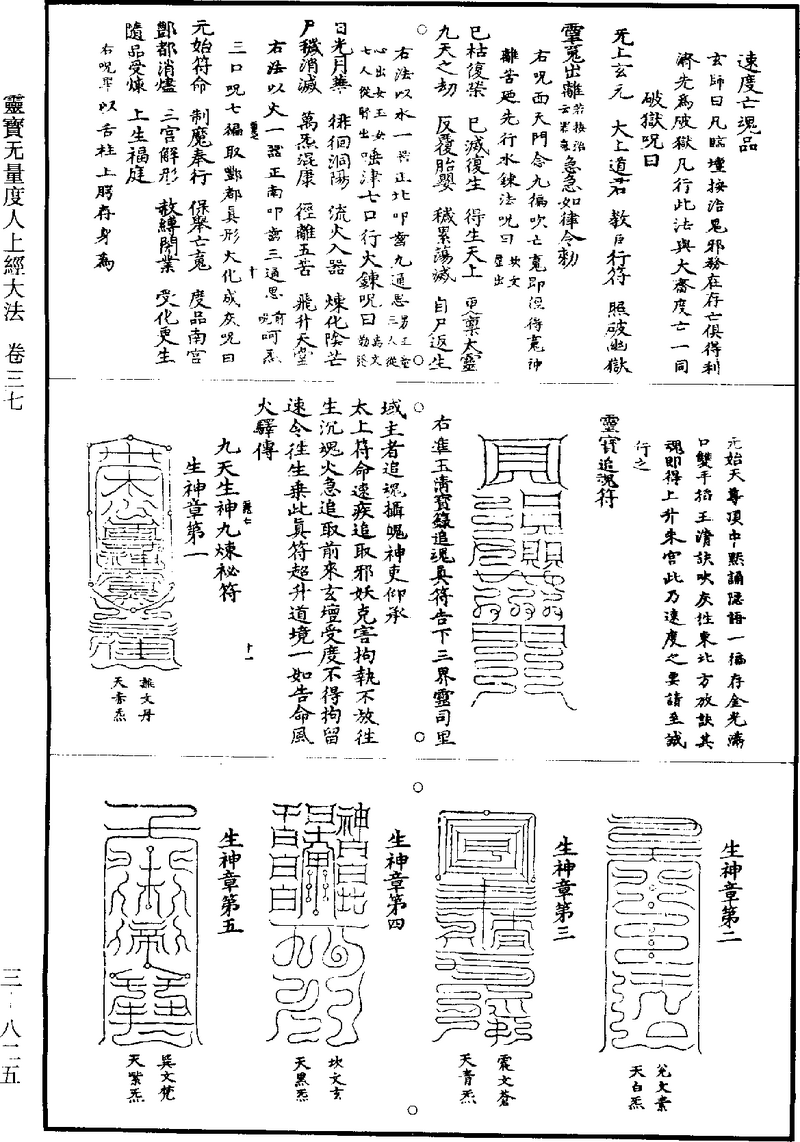 速度亡魂品
玄師曰凡臨壇按治鬼邪務在存亡俱得利
濟先為破獄凡行此法與大齋度亡一同
破獄呪曰
无上玄元　太上道君　敕臣行符　照破幽獄
靈䰟出離　急急如律令勑
右呪面天門念九徧吹亡䰟即徑得䰟神
離苦廼先行水鍊法呪曰
已枯復榮　已滅復生　得生天上　更稟太靈
九天之劫　反覆胎嬰　穢累蕩滅　自尸返生
右法以水一器正北叩齒九通思
唾津七口行火鍊呪曰
日光月華　徘徊洞陽　流火入器　煉化陰芒
尸穢消滅　萬炁混康　徑離五苦　飛升天堂
右法以火一器正南叩齒三通思前呪呵炁
三口呪七徧取酆都真形火化成灰呪曰
元始符命　制魔奉行　保舉亡䰟　度品南宮
酆都消燼　三官解形　赦縛開業　受化更生
隨品受煉　上生福庭
右呪畢以舌柱上腭存身為
元始天尊頂中黙誦隱語一徧存金光滿
口雙手掐玉清訣吹灰往東北方放訣其
魂即得上升朱宮此乃速度之要請至誠
行之
靈寶追魂符
右準玉清寶籙追魂真符告下三界靈司里
域主者追魂攝魄神吏仰承
太上符命速疾追取邪妖克害拘執不放往
生沉魂火急追取前來玄壇受度不得拘留
速令往生乗此真符超升道境一如告命風
火驛傳
九天生神九煉祕符
生神章第一
離文丹
天赤炁
生神章第二
兌文素
天白炁
生神章第三
震文蒼
天青炁
生神章第四
坎文玄
天黑炁
生神章第五
巽文梵
天紫炁
十
十一
靈寶无量度人上經大法　卷三七
三－八二五